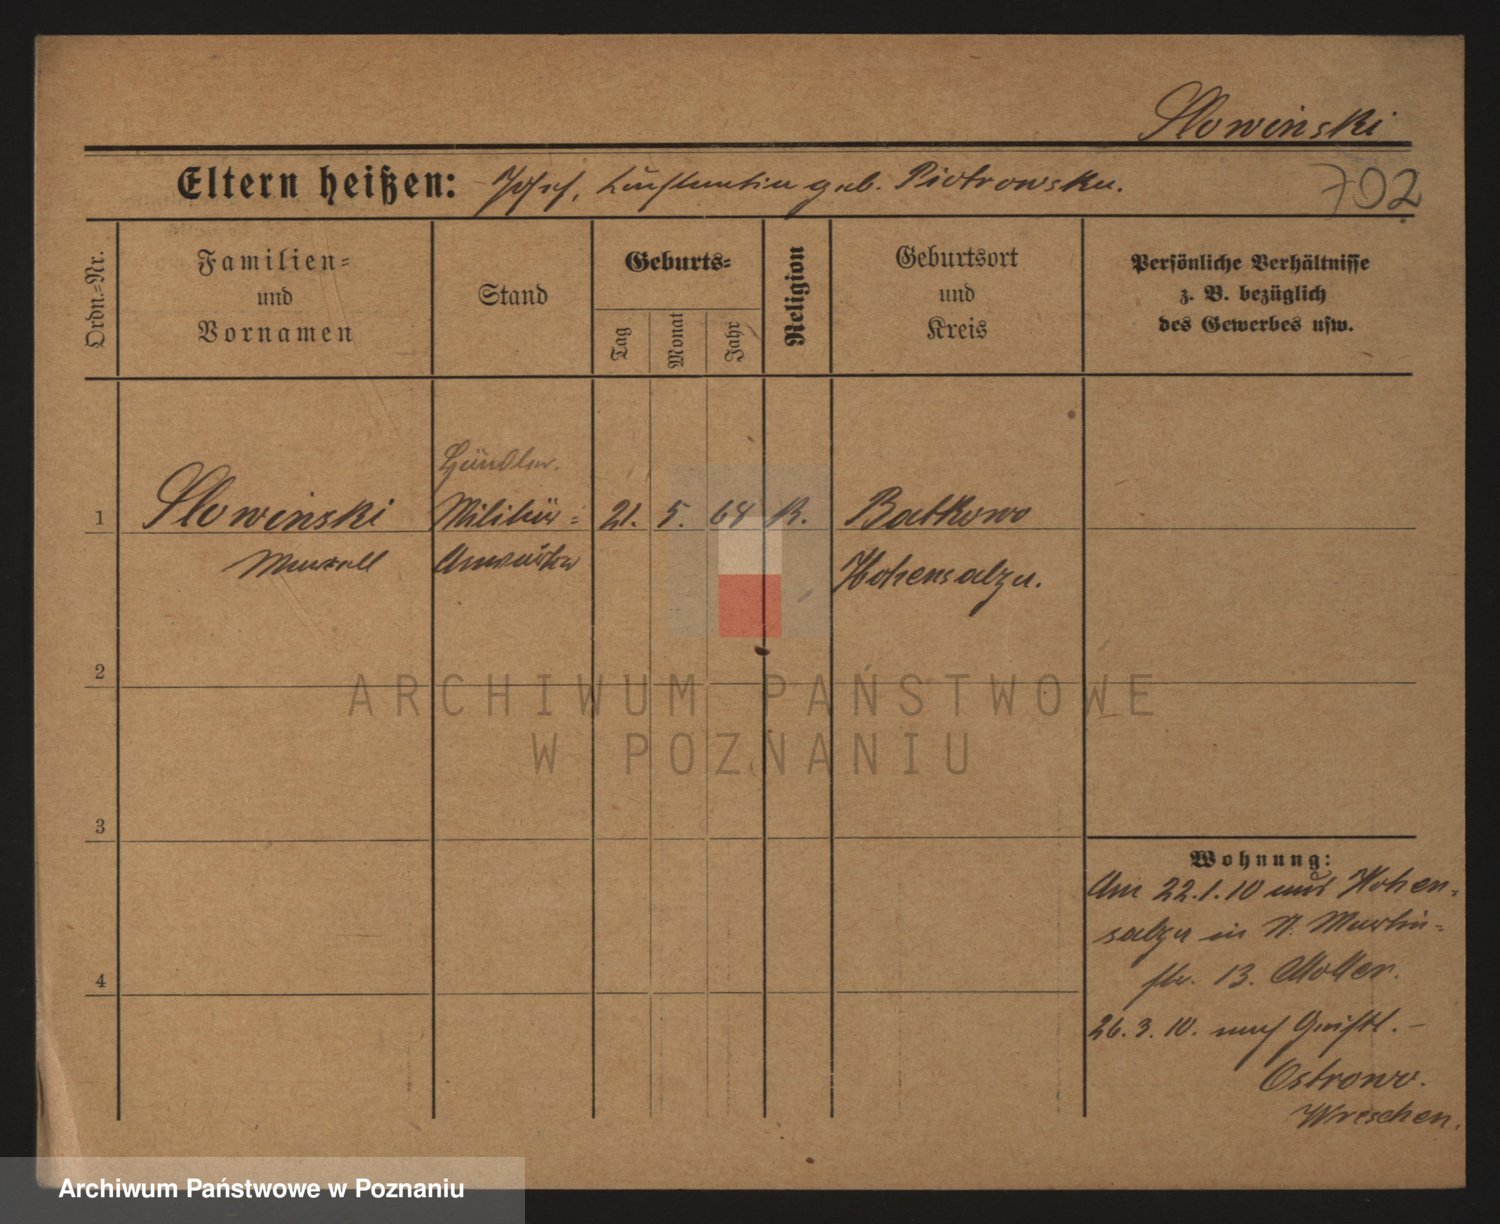 Slowinski
Eltern heißen: Josef, Konstantia geb. Piotrowska.
702
Ordn.-Nr.
Familien-
und
Vornamen
Stand
Geburts-
Tag
Monat
Jahr
Religion
Geburtsort
und
Kreis
Persönliche Verhältnisse
z. B. bezüglich
des Gewerbes usw.
Händler.
1 Slowinski Militär- 21. 5. 64 R. Batkowo
Anwärter Hohensalza.
2
ARCHIWUM PAŃSTWOWE
W POZNANIU
3
Wohnung:
Am 22.1.10 aus Hohen-
salza in St. Martin-
str. 13. Moller.
4
26.3.10. nach Geistl.-
Ostrowo.
Wreschen.
Archiwum Państwowe w Poznaniu